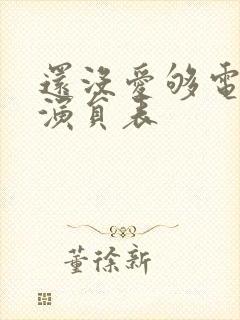 還沒愛够電
演員表
董徐新